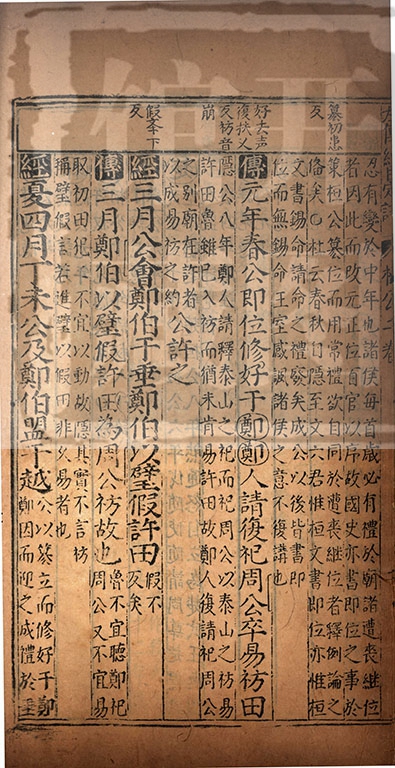 忍有變於中年也諸侯每首歲必有禮於廟諸遭喪繼位
者因此而改元正位百官以序故國史亦書即位之事於
篡初患反
策桓公篡位而用常禮欲自同於遭喪継位者釋例論之
俻矣○杜云春秋曰隱至文六君惟桓文書即位亦惟桓
文書錫命請命之禮癈矣成公以後皆書即
位而無錫命王室諸侯之意不復講也
好去声
復扶又反
祊音崩
傳元年春公即位修好于鄭鄭人請復祀周公卒易祊田
隱公八年鄭人請釋泰山之祀而祀周公以泰山之祊易
許田魯雖已入祊而猶未肯易許田故鄭人復請祀周公
之別廟在許者公許之
以成易祊之約
經三月公會鄭伯于垂鄭伯以璧假許田假不反矣
傳三月鄭伯以璧假許田為周公祊故也魯不宜聽鄭祀周公又不宜易
取祊田犯二不宜以動故隱其實不言祊
稱璧假言若進璧以假田非久易者也
經夏四月丁未公及鄭伯盟于越公以篡立而修好于鄭鄭因而迎之成禮於垂